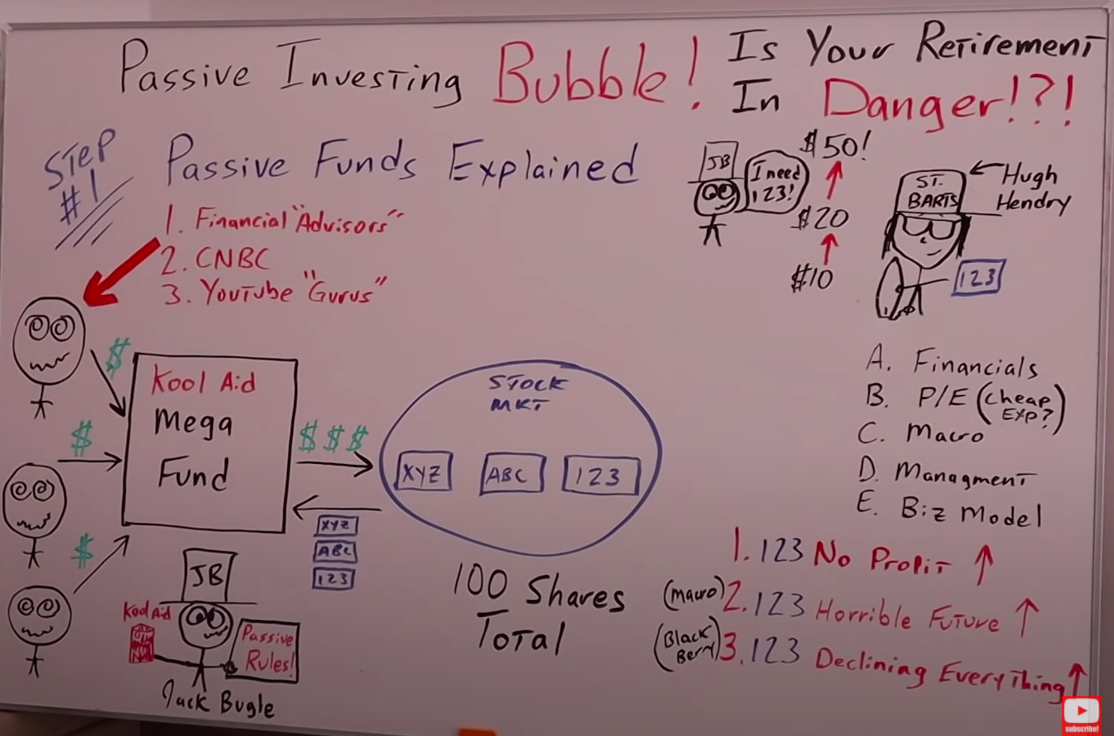 Passive Investing Bubble! Is Your Retirement
In Danger!?!
Step
#1
Passive Funds Explained
1. Financial "Advisors"
2. CNBC
3. YouTube "Gurus"
JB
I need
123!
$50!
$20
$10
ST.
BARTS
Hugh
Hendry
123
$
$
$
Kool Aid
Mega
Fund
$$$
STOCK
MKT
XYZ
ABC
123
XYZ
ABC
123
100 Shares
Total
JB
Kool Aid
Passive
Rules!
Jack Bugle
A. Financials
B. P/E (Cheap
Exp?)
C. Macro
D. Managment
E. Biz Model
1. 123 No Profit
(Macro) 2. 123 Horrible Future
(Black
Berry) 3. 123 Declining Everything
subscribe!